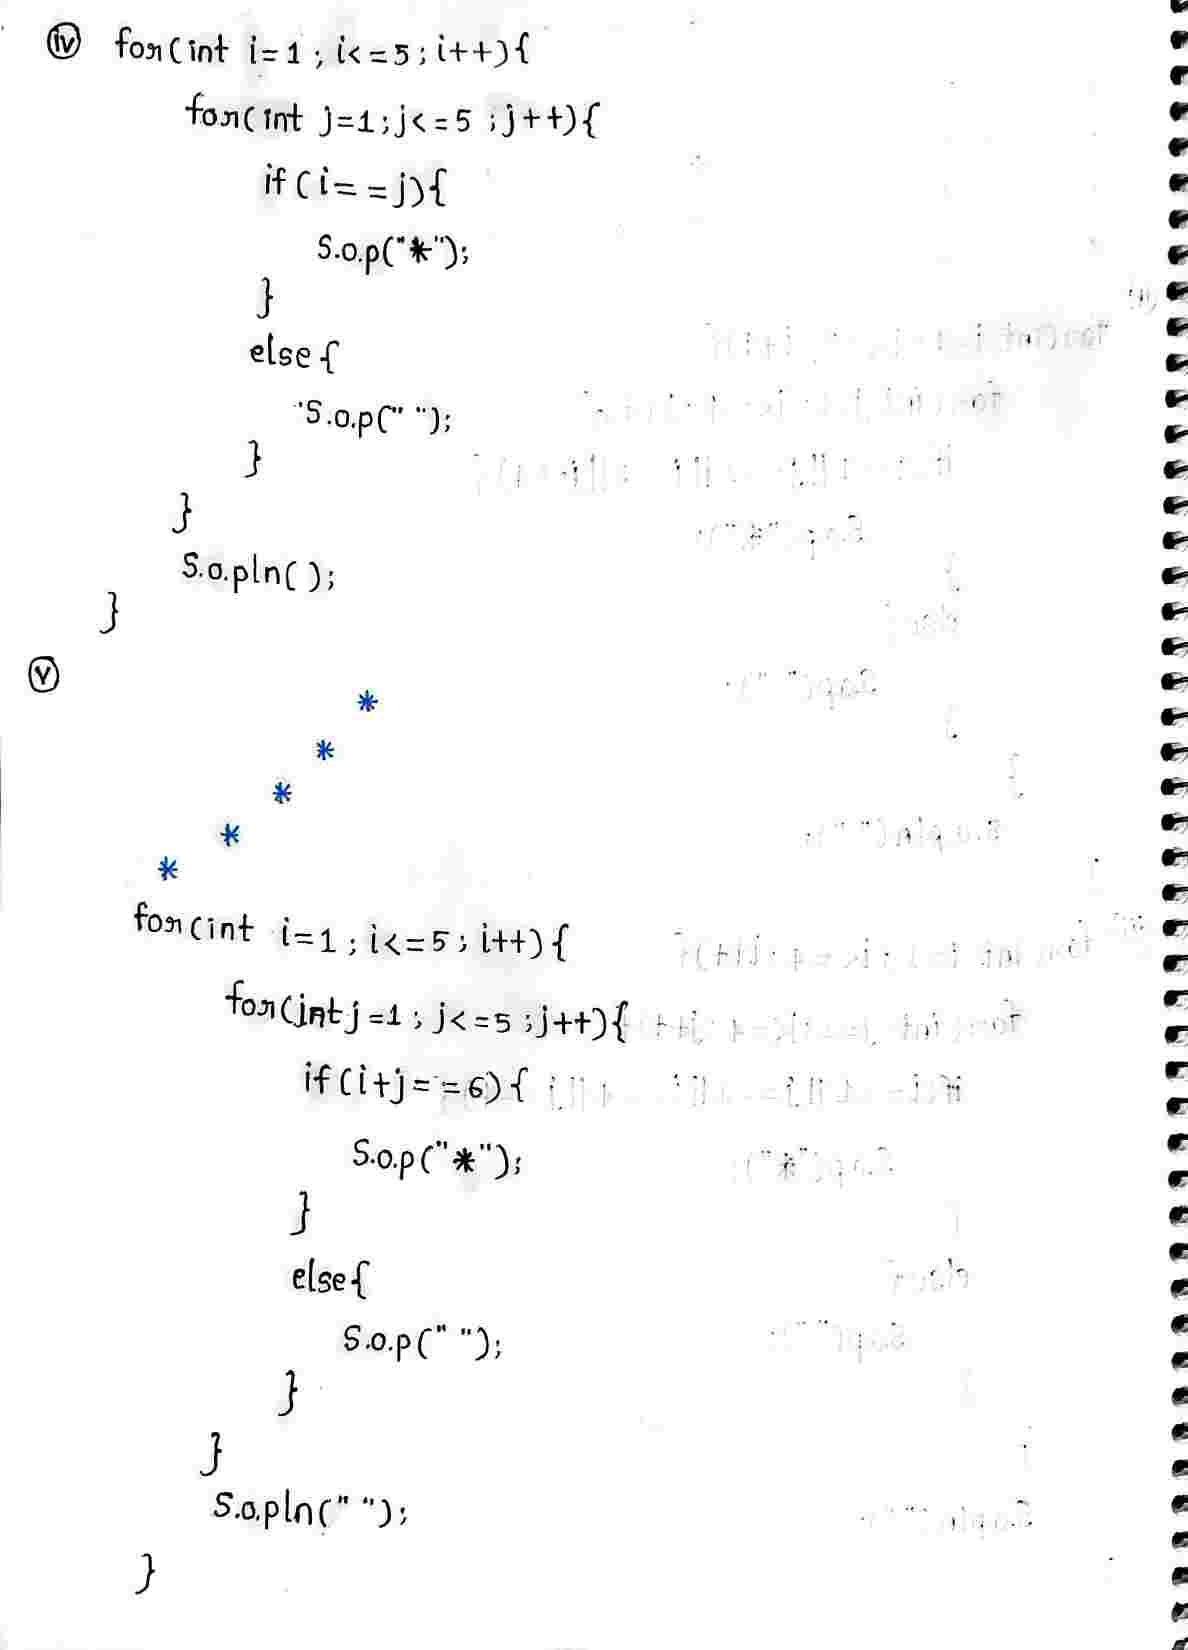 iv for(int i=1 ; i<=5 ; i++){
for(int j=1;j<=5 ;j++){
if(i==j){
S.o.p("*");
}
else{
S.o.p(" ");
}
}
S.o.pln( );
}
v
*
*
*
*
*
for(int i=1 ; i<=5 ; i++){
for(int j=1 ; j<=5 ;j++){
if(i+j==6){
S.o.p("*");
}
else{
S.o.p(" ");
}
}
S.o.pln(" ");
}